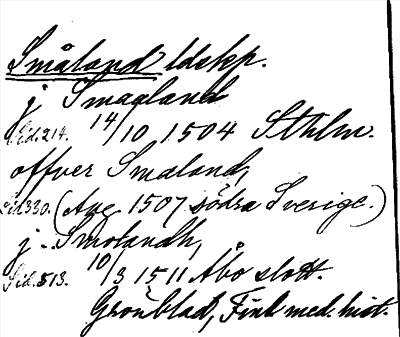 Småland ldskp.
j Smaaland
Sid. 214. 14/10 1504 Sthlm.
offver Smaland,
Sid 330. (Aug 1507 södra Sverige.)
j. Smolandh,
Sid. 513. 10/3 1511 Åbo slott.
Grönblad, Finl med. hist.